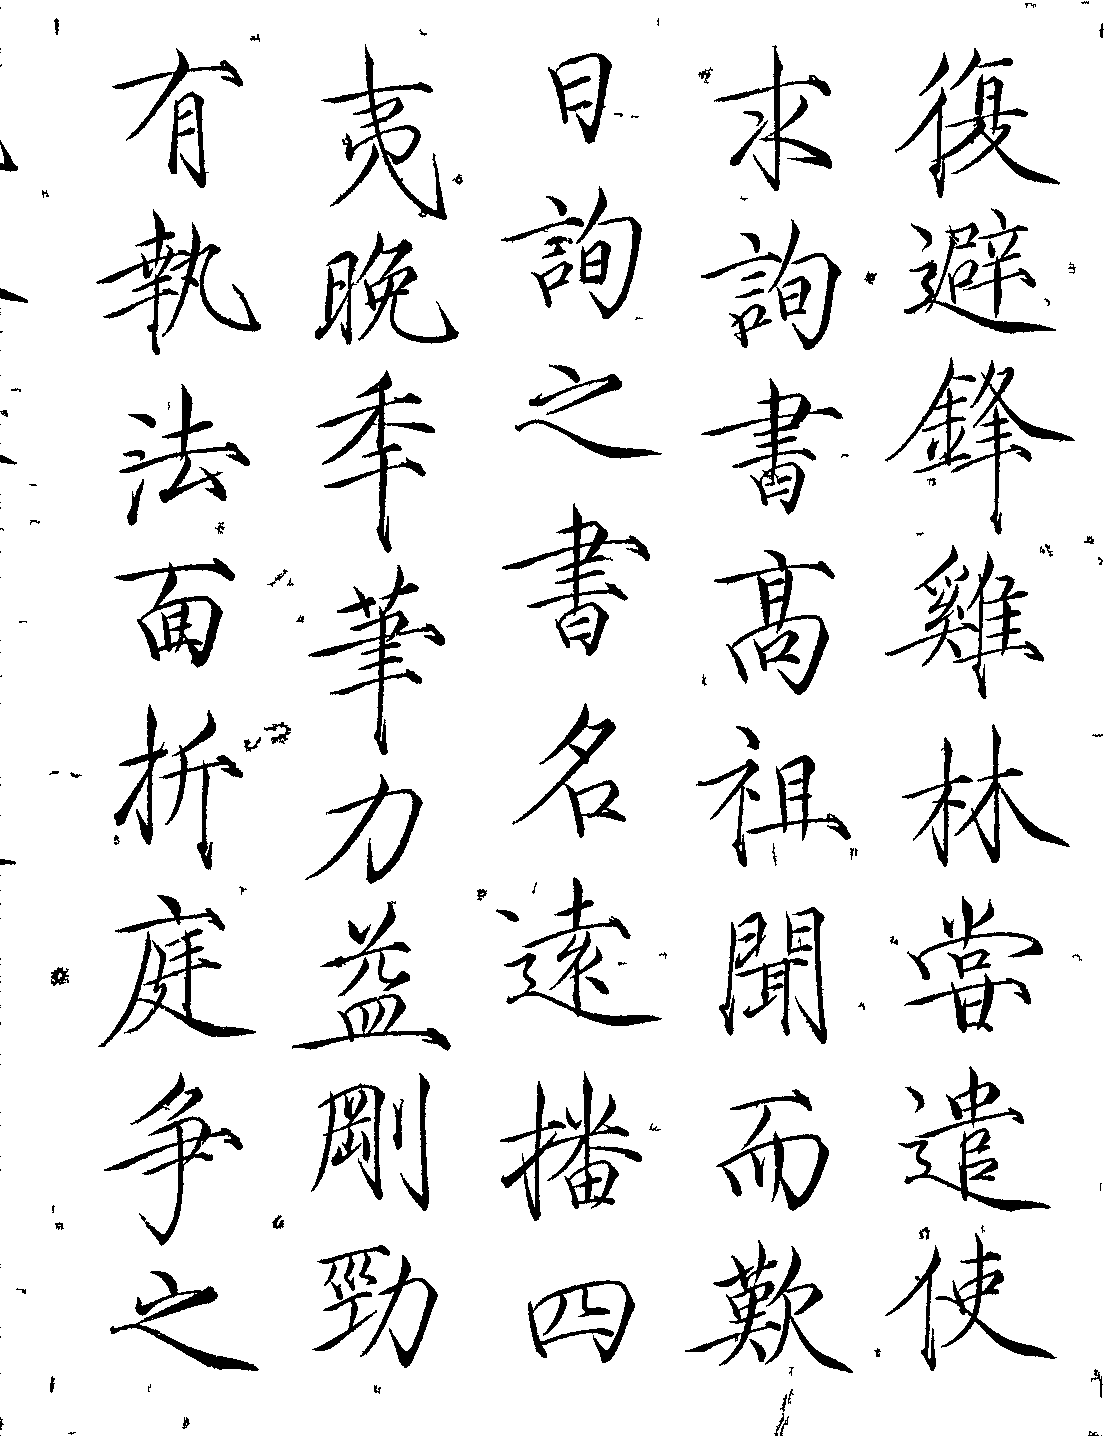 復避鋒雞林嘗遣使
求詢書高祖聞而歎
曰詢之書名遠播四
夷晚季筆力益剛勁
有執法面折庭争之